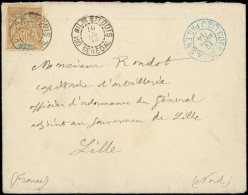 CORR. MIL. ST LOUIS
SENEGAL
Monsieur Rondot
capitaine d'artillerie
officier d'ordonnance du Général
adjoint au gouverneur de Lille
Lille
(France) (Nord)